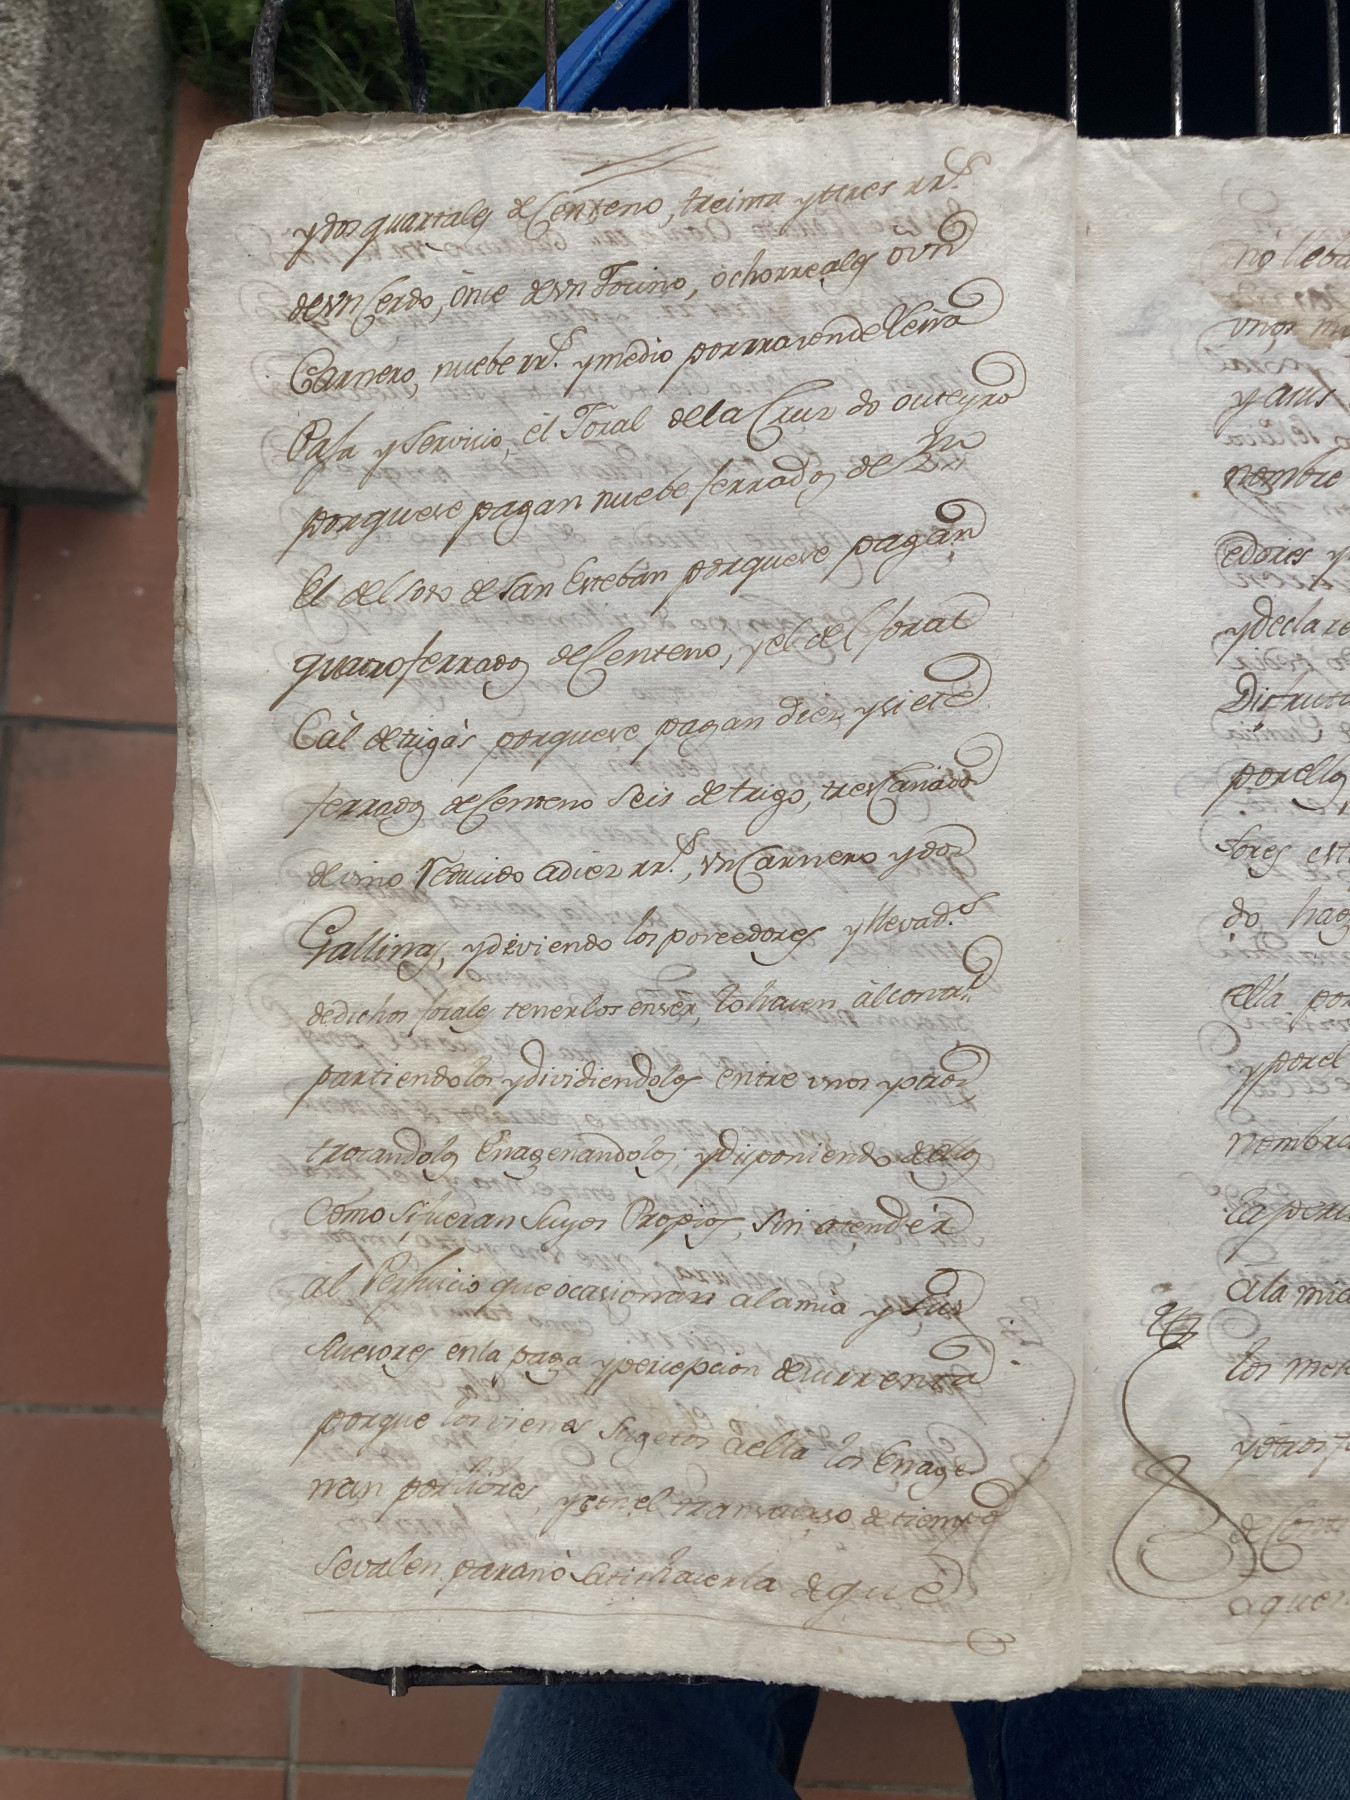 y dos quartales de Centeno, treinta y tres rr.s
de vn Cerdo, ônce de vn Tocino, ôcho rreales o vn
Carnero, nuebe rr.s y medio por rrazon de Leña
Paja y servicio, el Foral de la Cruz do outeyro
porque se pagan nuebe ferrados de
El del soto de san Esteban porque se pagan
quatro ferrados de Centeno, y el del foral
Cal de trigás porque se pagan diez y siete
ferrados de Centeno seis de trigo, tres Cañados
de vino reducido a diez rr.s, vn Carnero y dos
Gallinas, y diviendo los poseedores y llevad.s
de dichos forales tenerlos en sér, lo hacen âl contr.o
partiendolos y dividiendolos entre vnos y otros
trocandolos Enagenandolos, y disponiendo de ellos
Como si fueran suyos Propios, sin atender
al Perjuicio que ocasionan a la mia y sus
suzesores en la paga y percepcion de su rrenta
porque los vienes sugetos a ella los Enage
nan por libres, y con el transcurso de tiempo
se valen para nó satisfacerla de que
no
vnos
y aus
nombre
edores y
y declare
Disfruta
por ellos
fores est
do hag
ella por
y por el
nombra
la
a la mia
los
y otros f
de
aquel